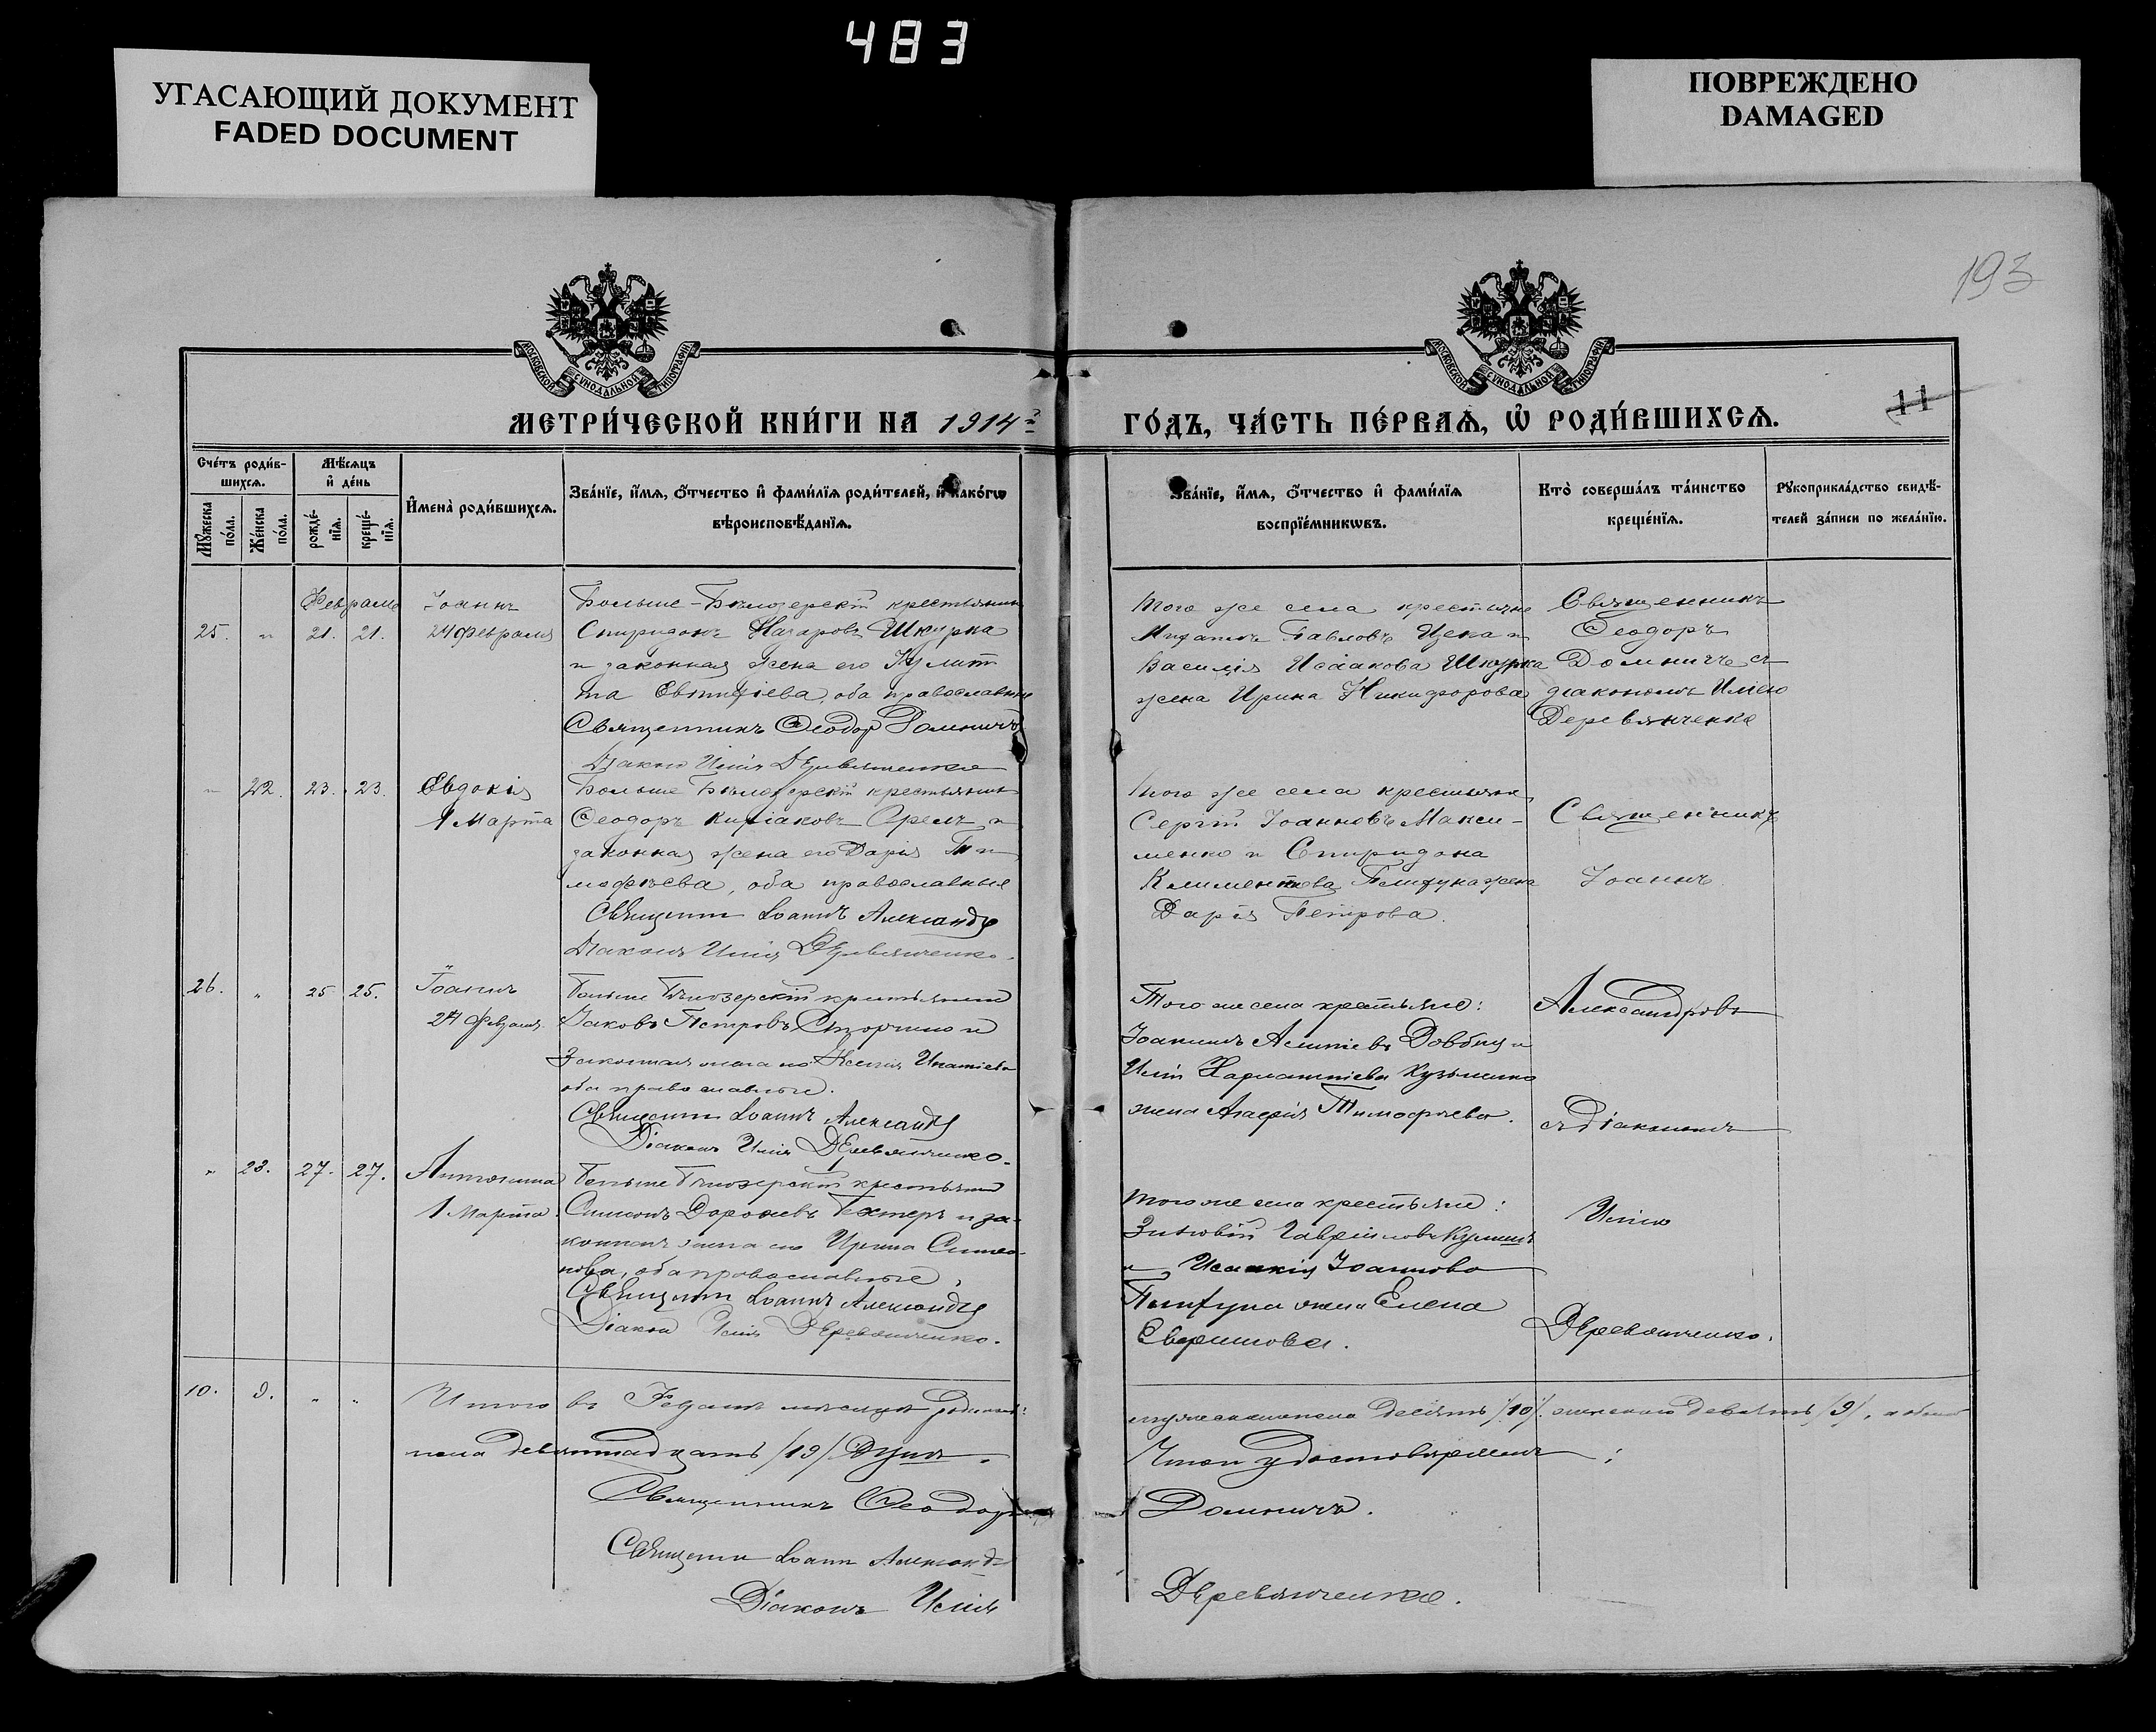 483
УГАСАЮЩИЙ ДОКУМЕНТ
FADED DOCUMENT
ПОВРЕЖДЕНО
DAMAGED
193
МОСКОВСКОЙ СѴНОДАЛЬНОЙ ТИПОГРАФІИ
МОСКОВСКОЙ СѴНОДАЛЬНОЙ ТИПОГРАФІИ
МЕТРИ́ЧЕСКОЙ КНИ́ГИ НА 1914 г
ГО́ДЪ, ЧА́СТЬ ПЕ́РВАѦ, Ѿ РОДИ́ВШИХСѦ.
11
Сче́тъ роди́в-
шихсѧ.
Мѣ́сѧцъ
и҆ де́нь
Мꙋ́жеска по́ла.
Же́нска по́ла.
рожде́-нїѧ.
креще́-нїѧ.
И҆мена̀ роди́вшихсѧ.
Зва́нїе, и҆́мѧ, ѻ҆́тчество и҆ фами́лїѧ роди́телей, и҆ како́гѡ
вѣроисповѣ́данїѧ.
Зва́нїе, и҆́мѧ, ѻ҆́тчество и҆ фами́лїѧ
воспрїе́мникѡвъ.
Кто̀ соверша́лъ та́инство
креще́нїѧ.
Рꙋкоприкла́дство свидѣ́-
телей за́писи по жела́нїю.
Февраль
25. " 21. 21.
Іоаннъ
24 февраля
Больше-Бѣлозерскій крестьянинъ
Спиридонъ Назаровъ Шкурка
и законная жена его Іулит
та, оба православные
Священникъ Ѳеодоръ Домничъ
Діаконъ Илія Деревянченко
Того же села крестьяне
Павловъ Цека и
Василія Исаакова Шкурка
жена Ирина Никифорова
Священникъ
Ѳеодоръ
Домничъ съ
діакономъ Иліею
Деревянченко
" 22. 23. 23.
Евдокія
1 Марта
Больше Бѣлозерскій крестьянинъ
Ѳеодоръ Киріаковъ Орелъ и
законная жена его Дарія Ти
моѳеева, оба православные
Священникъ Іоаннъ Александр
Діаконъ Илія Деревянченко.
Того же села крестьяне
Сергій Іоанновъ Макси-
менко и Спиридона
Климентова жена
Дарія Петрова.
Священникъ
Іоаннъ
26. " 25 25.
Іоаннъ
24 февраля.
Больше Бѣлозерскій крестьянинъ
Іаковъ Петровъ Сторчило и
Законная жена его Ксенія Игнатіева
оба православные.
Священникъ Іоаннъ Александр
Діаконъ Илія Деревянченко.
Того же села крестьяне:
Іоакимъ Довбня и
Иліи Кузьменко
жена Агафія Тимоѳеева.
Александровъ
съ діакономъ
" 23. 27. 27.
Антонина
1 Марта.
Больше Бѣлозерскій крестьянинъ
Симеонъ Дороѳеевъ Бехтеръ и за-
конная жена его Ирина Симео-
нова, оба православные.
Священникъ Іоаннъ Александр
Діаконъ Илія Деревянченко.
Того же села крестьяне:
Зиновій Гавріиловъ
и Исаакія Іоаннова
жена Елена
Иліею
Деревянченко.
10. 9. " "
Итого въ мѣсяцѣ родилось:
мужескаго пола десять /10/. женскаго девять /9/, а обоего
пола девятнадцать /19/ Душъ.
Что и удостовѣряемъ:
Священникъ Ѳеодоръ Домничъ.
Священникъ Іоаннъ Александр
Діаконъ Илія Деревянченко.